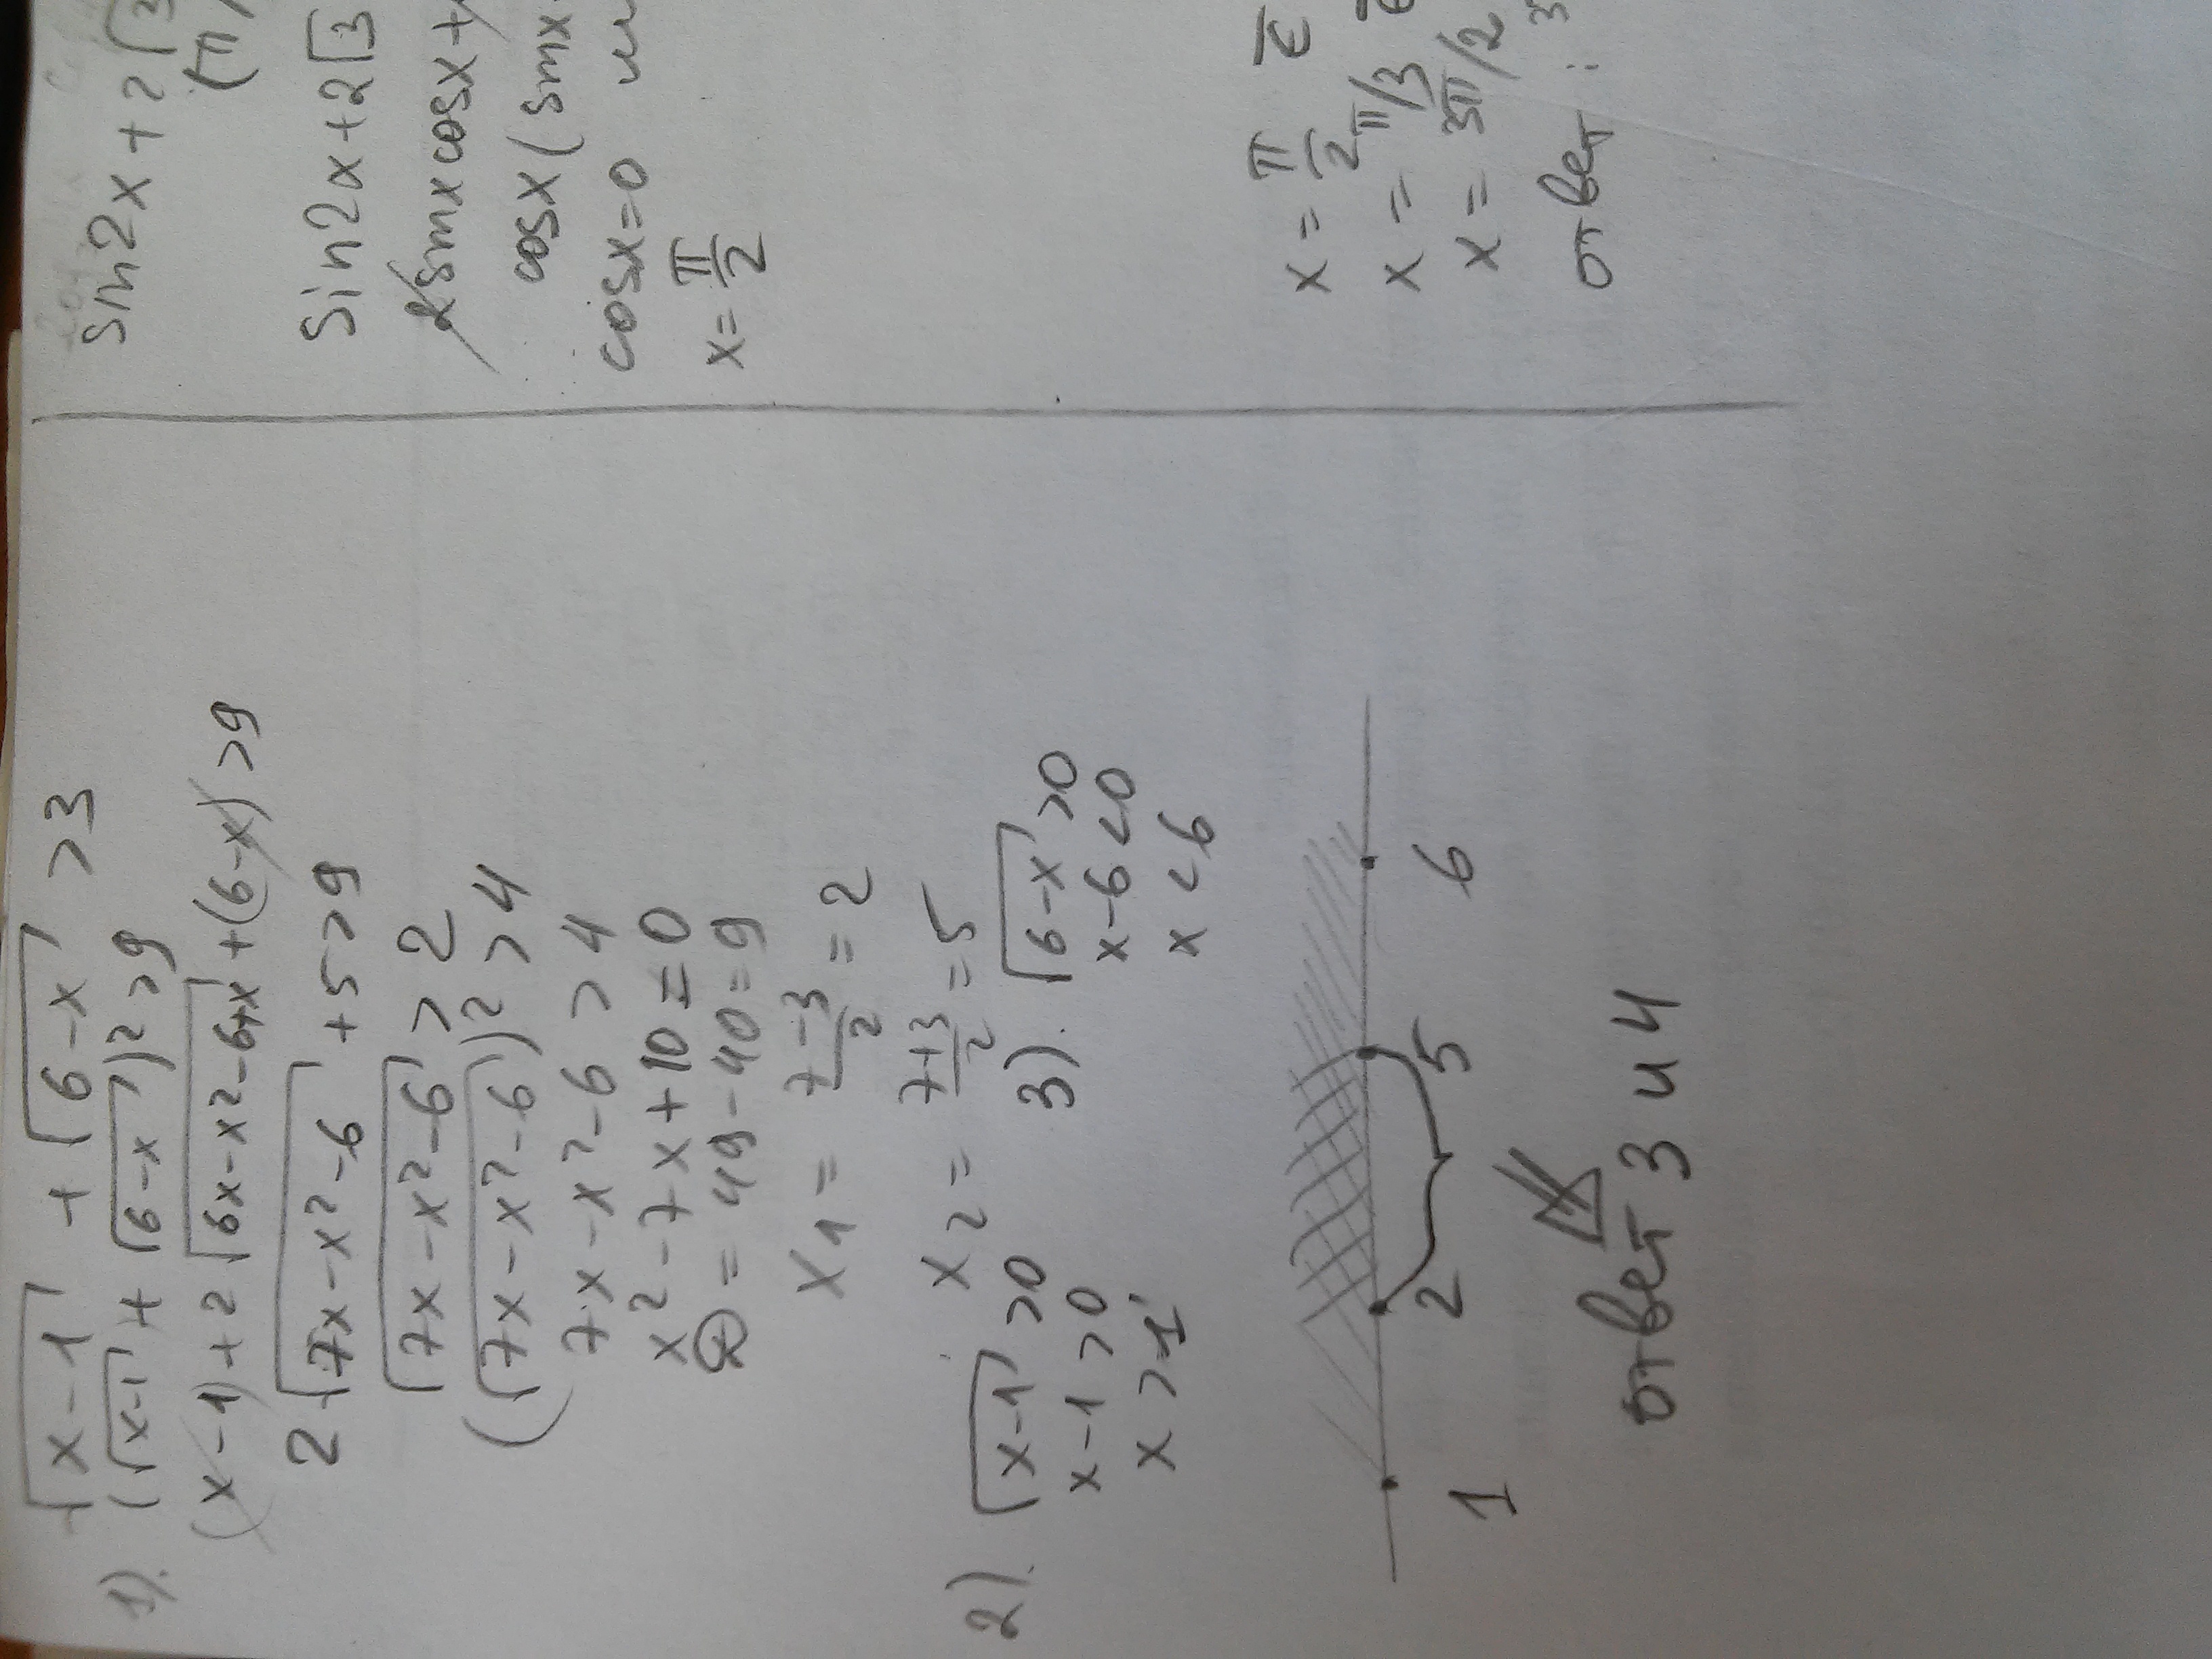 √x-1 + √6-x > 3
1). (√x-1 + √6-x)² > 9
(x-1) + 2√6x-x²-6+x + (6-x) > 9
2√7x-x²-6 + 5 > 9
√7x-x²-6 > 2
(√7x-x²-6)² > 4
7x-x²-6 > 4
x²-7x+10=0
D = 49-40=9
x1 = 7-3/2 = 2
x2 = 7+3/2 = 5
2). √x-1 > 0
x-1 > 0
x > 1
3). √6-x > 0
x-6 < 0
x < 6
1 2 5 6
ответ 3 и 4
Sin2x + 2√3
(π/
Sin2x + 2√3
2sinx cosx +
cosx (sinx
cosx=0 и
x= π/2
x = π/2 ∈
x = π/3 ∈
x = 3π/2
ответ :